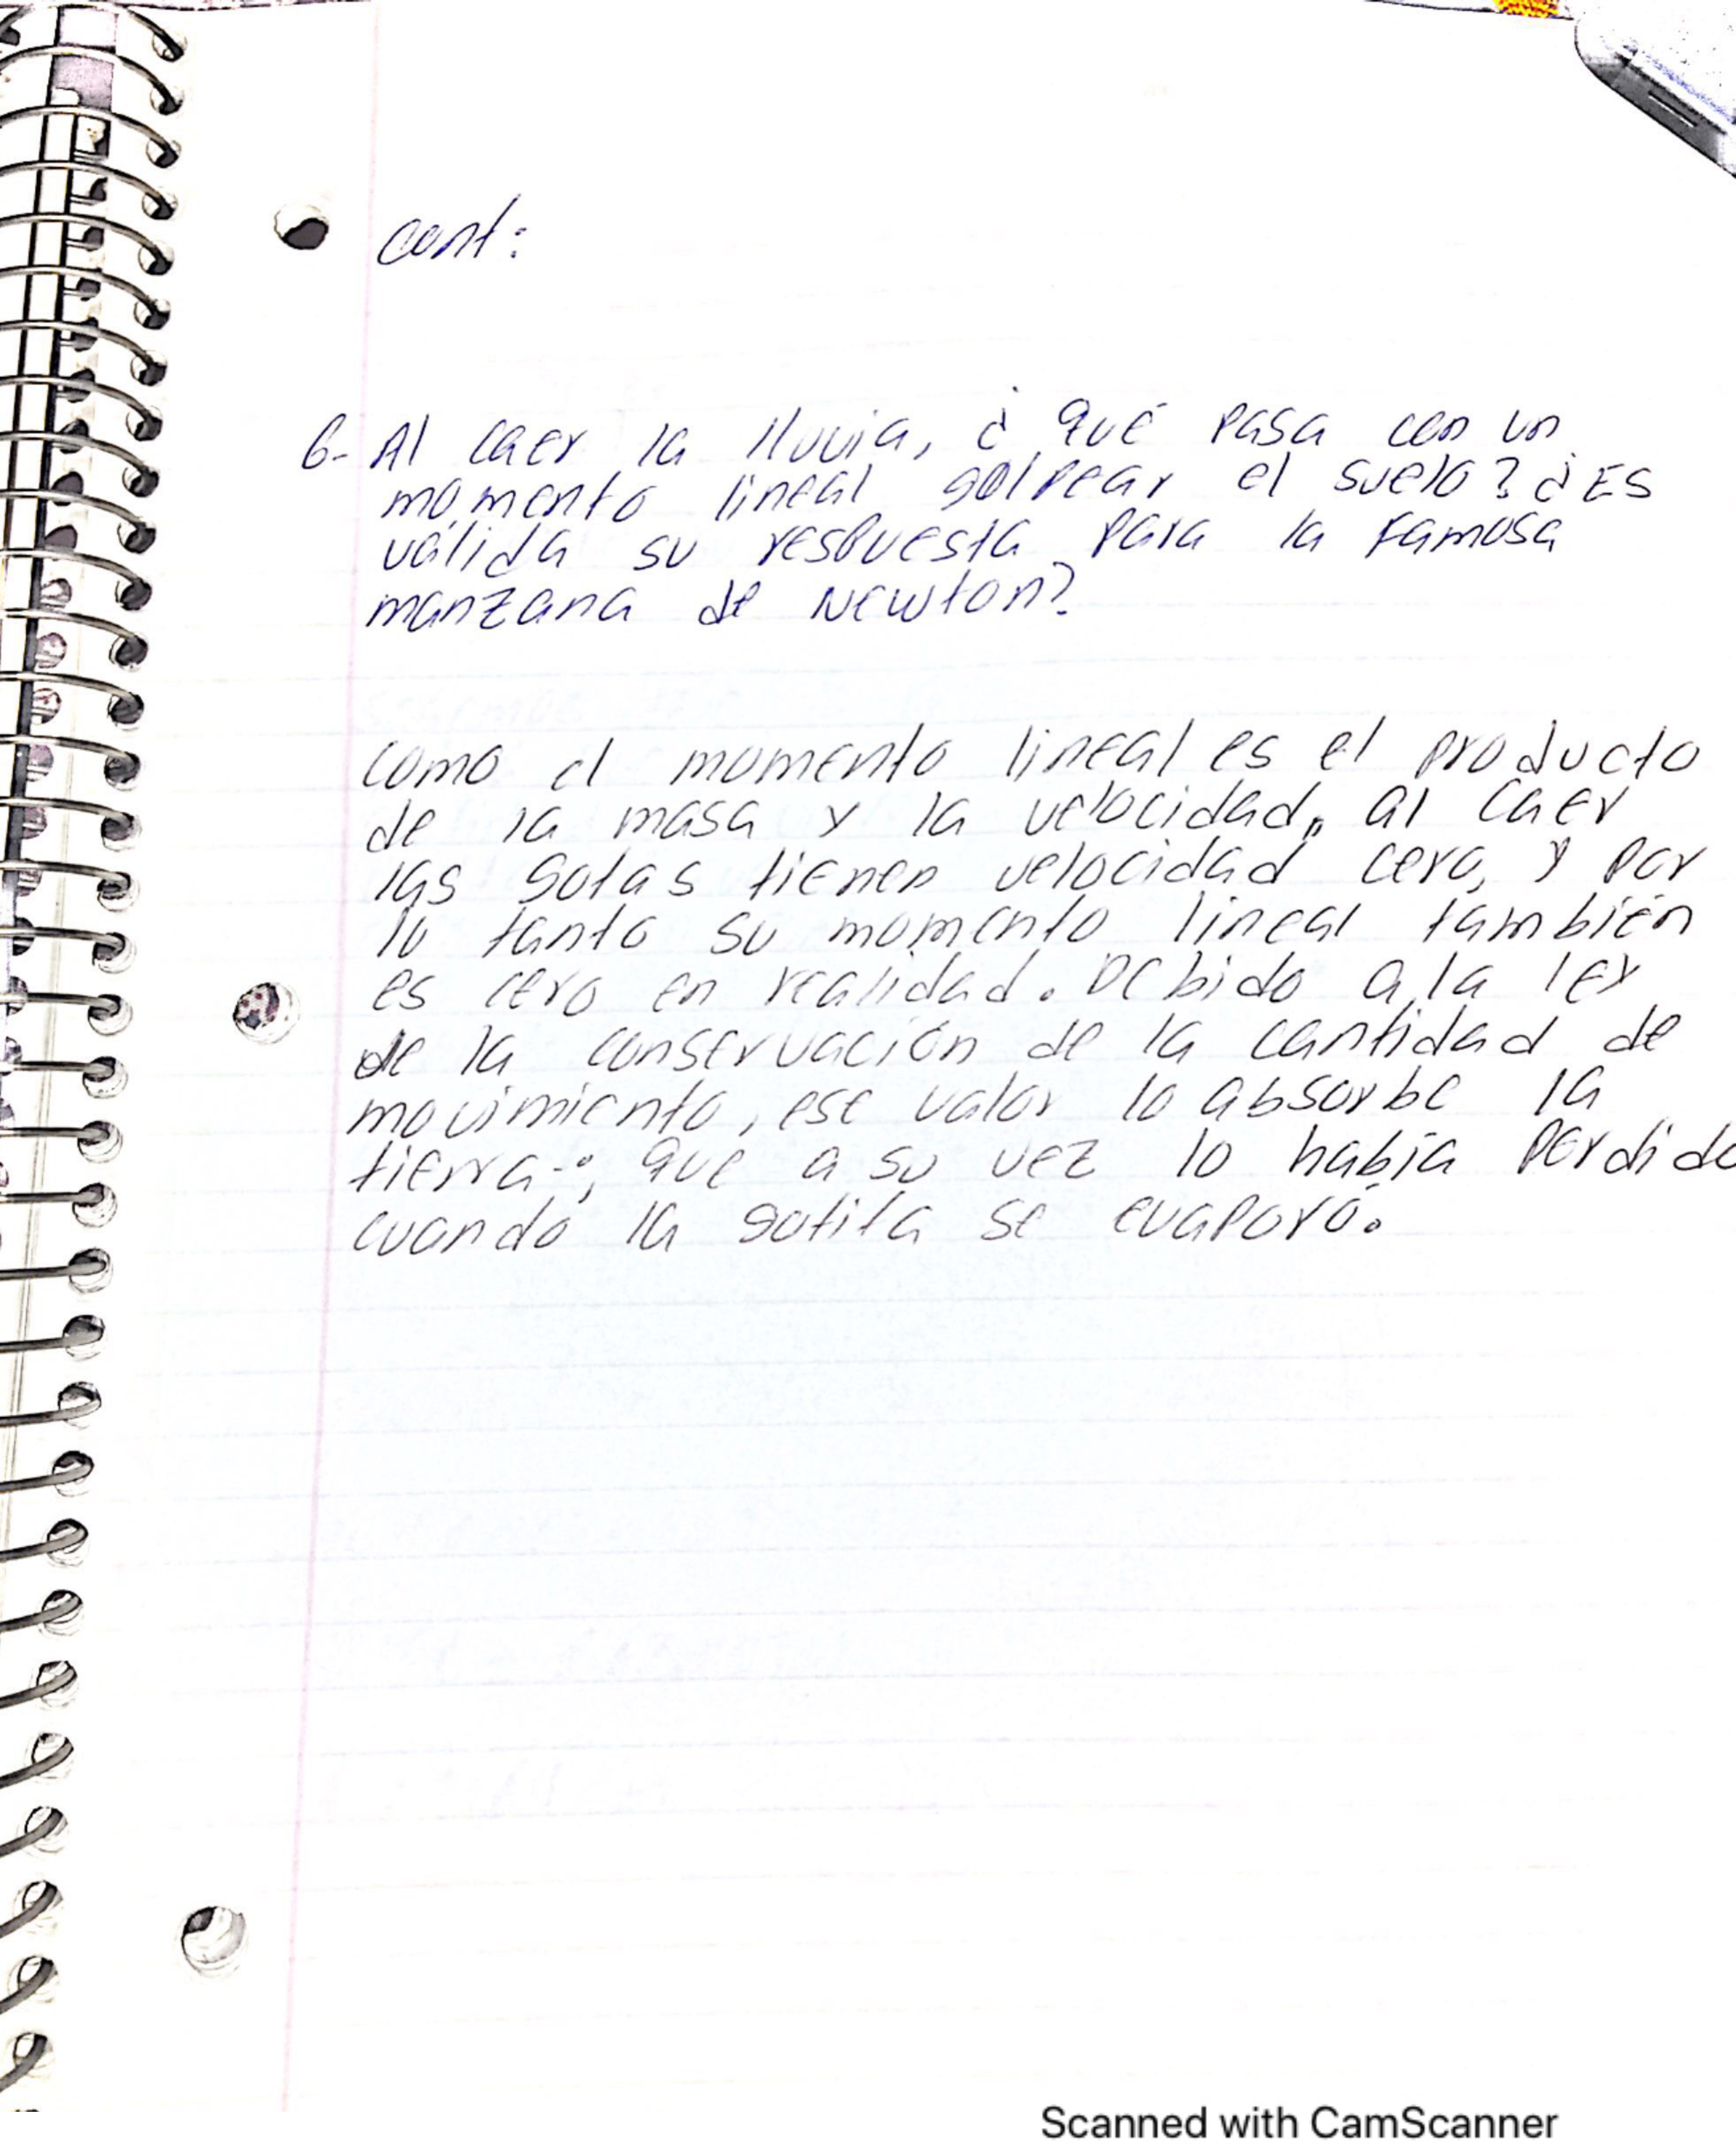 cont:
6- Al caer la lluvia, ¿ qué pasa con un
momento lineal golpear el suelo? ¿Es
válida su respuesta para la famosa
manzana de Newton?
como el momento lineal es el producto
de la masa y la velocidad, al caer
las gotas tienen velocidad cero, y por
lo tanto su momento lineal también
es cero en realidad. Debido a la ley
de la conservación de la cantidad de
movimiento, ese valor lo absorbe la
tierra-; que a su vez lo había perdido
cuando la gotita se evaporó.
Scanned with CamScanner